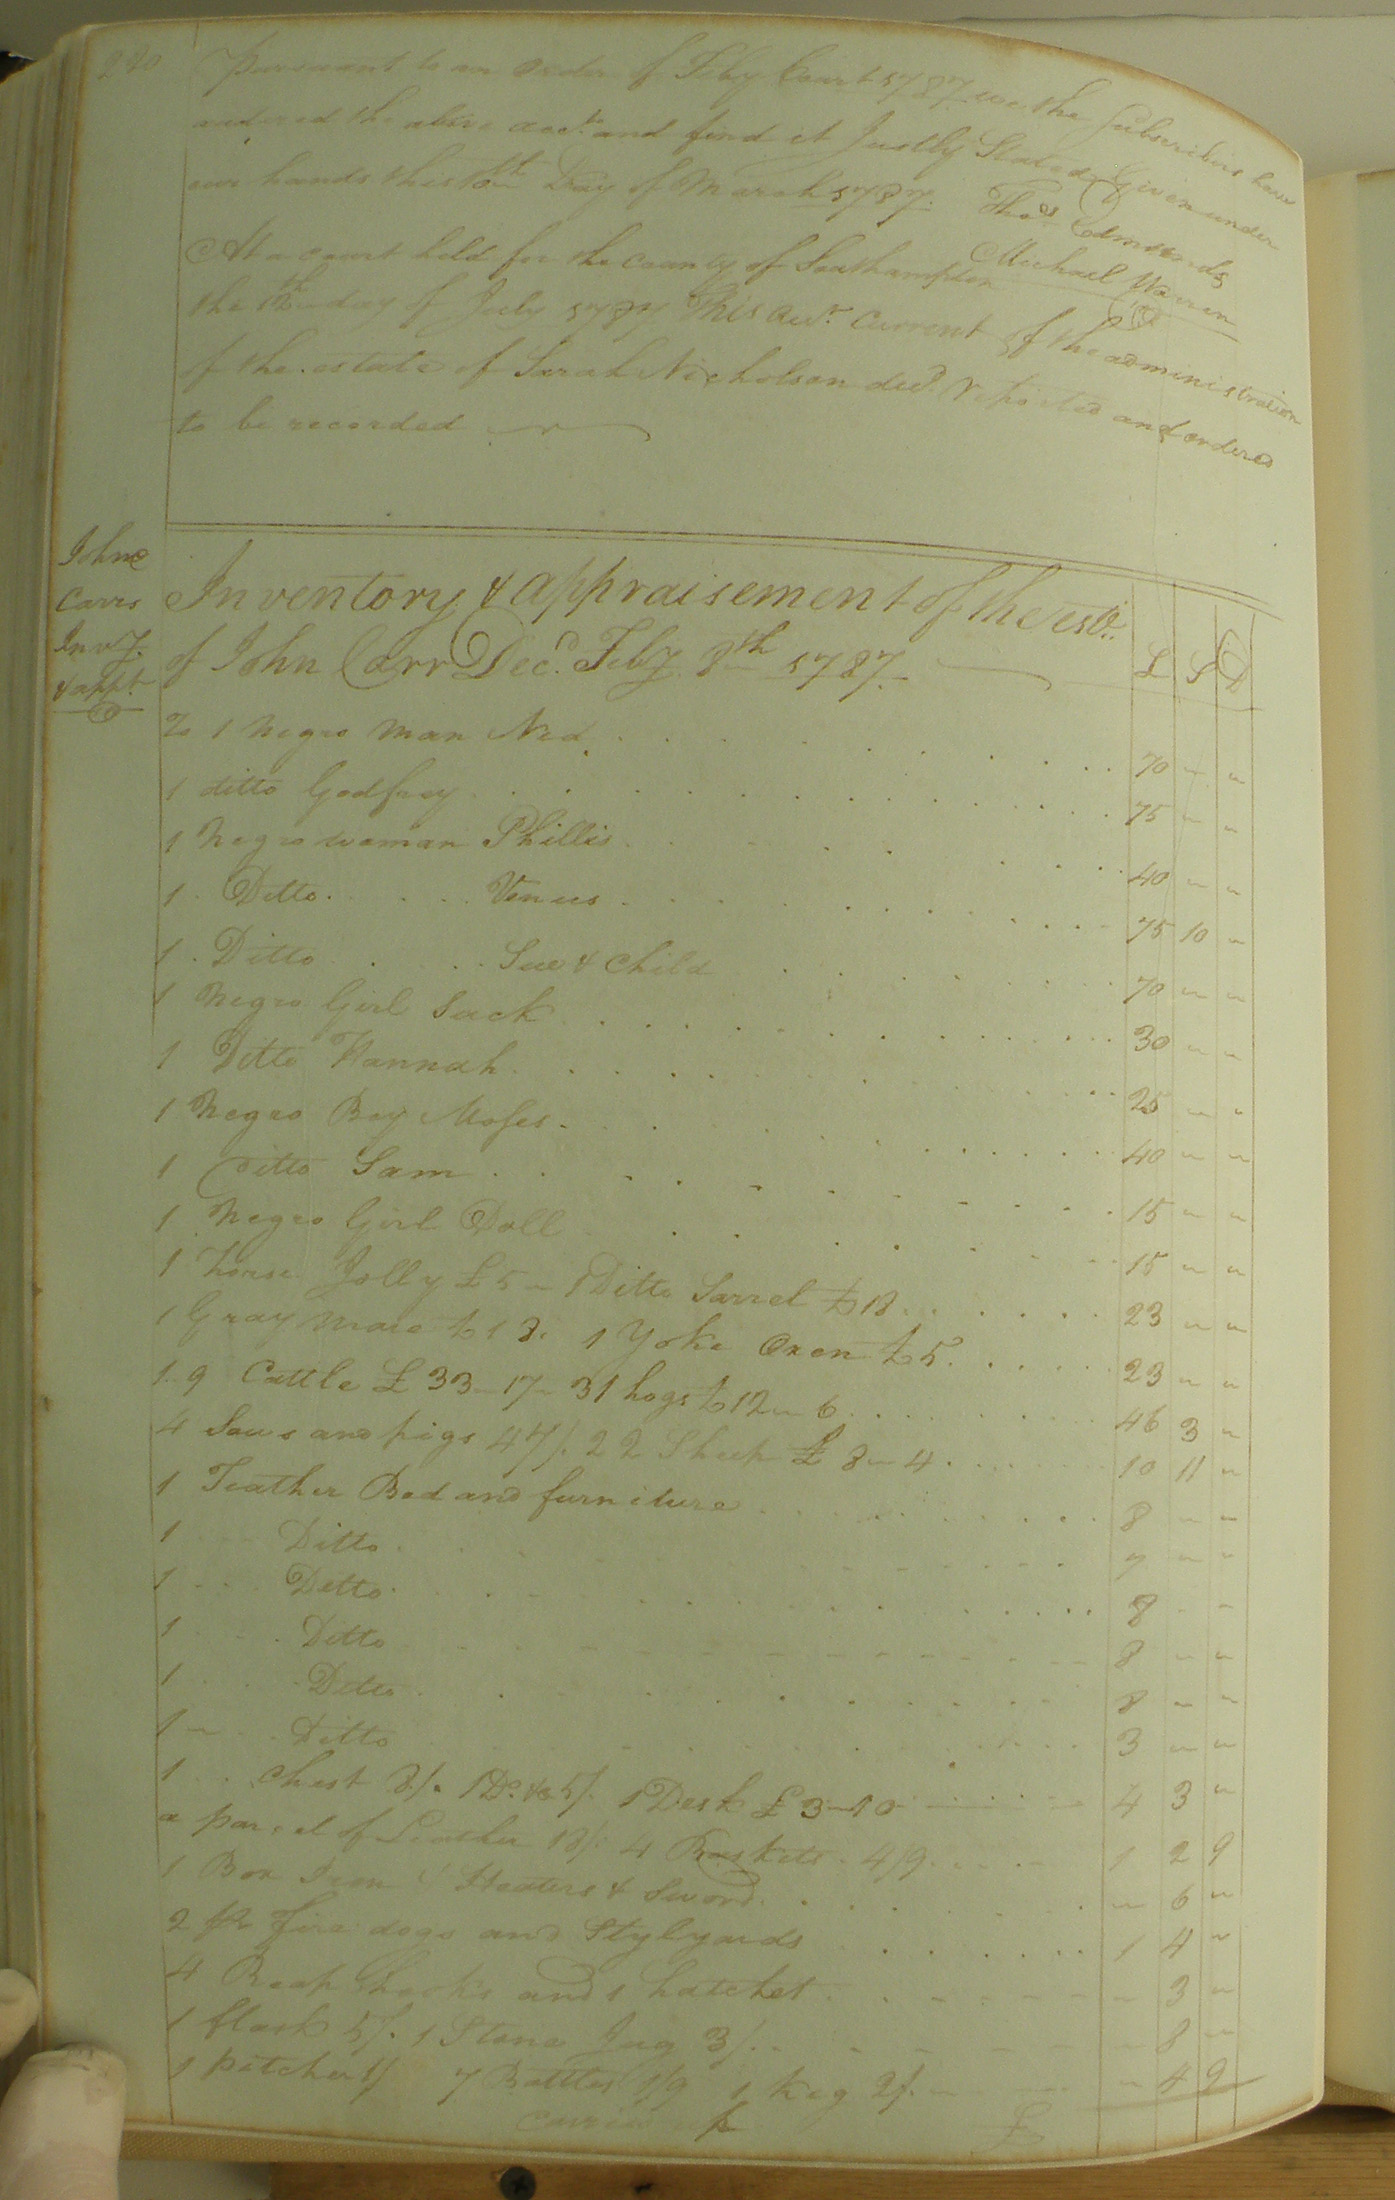 220
Pursuant to an order of Feby Court 1787 we the Subscribers have
andered the above acct. and find it Justly Stated Given under
our hands this 10th Day of March 1787. Thos. Edmunds
Michael Warren
At a court held for the county of Southampton
the 12th day of July 1787 This acct. Current of the administration
of the estate of Sarah Nicholson decd. reported and ordered
to be recorded
John
Carrs
Invy.
& appt.
Inventory & appraisement of the est.
of John Carr Decd. Feby 8th 1787
£ S D
To 1 Negro man Ned 70 " "
1 ditto Godfrey 75 " "
1 Negro woman Phillis 40 " "
1 Ditto Venus 75 10 "
1 Ditto Sue & Child 70 " "
1 Negro Girl Suck 30 " "
1 Ditto Hannah 25 " "
1 Negro Boy Moses 40 " "
1 ditto Sam 15 " "
1 Negro Girl Doll 15 " "
1 horse Jolly £5 - 1 Ditto Sarrel £18 23 " "
1 Gray mare £18. 1 Yoke Oxen £5 23 " "
19 Cattle £33-17- 31 hogs £12 " 6 46 3 "
4 Sows and pigs 47/. 22 Sheep £8-4 10 11 "
1 Feather Bed and furniture 8 " "
1 Ditto 7 " "
1 Ditto 8 " "
1 Ditto 8 " "
1 Ditto 8 " "
1 Ditto 3 " "
1 Chest 8/. 1 Do. 5/. 1 Desk £3-10 4 3 "
a parcel of Leather 18/. 4 Baskets 4/9 1 2 9
1 Box Iron Heaters & Sword " 6 "
2 pr fire dogs and Stylyards 1 4 "
4 Reap hooks and 1 hatchet " 3 "
1 flask 5/. 1 Stone Jug 3/. " 8 "
1 pitcher 1/ 7 Bottles 1/9 1 Keg 2/. " 4 9
Carried £